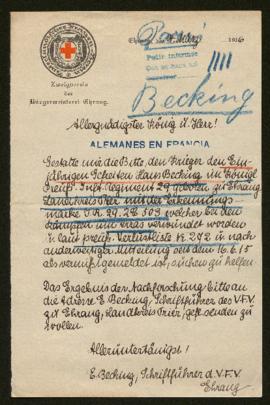 Zweigverein
der
Bürgermeisterei Ehrang.
Ehrang, 1916
Becking
Pedir informes
Becking
Allergnädigster König u. Herr!
ALEMANES EN FRANCIA
Gestatte mir die Bitte, den Krieger den Ein-
jährigen Gefreiten Hans Becking im Königl.
Preuß. Inft. Regiment 29 geboren zu Ehrang
Landkreis Trier mit der Erkennungs-
marke I.R. 29. 2K 505, welcher bei den
Kämpfen um Arras verwundet worden
u. laut preuß. Verlustliste N. 272 u. nach
anderweitiger Mitteilung seit dem 16.6.15
als vermißt gemeldet ist, suchen zu helfen.
Das Ergebnis der Nachforschung bitte an
die Adresse E. Becking, Schriftführer des V.F.V.
zu Ehrang, Landkreis Trier, gefl. senden zu
wollen.
Alleruntertänigst!
E. Becking, Schriftführer d. V.F.V.
Ehrang